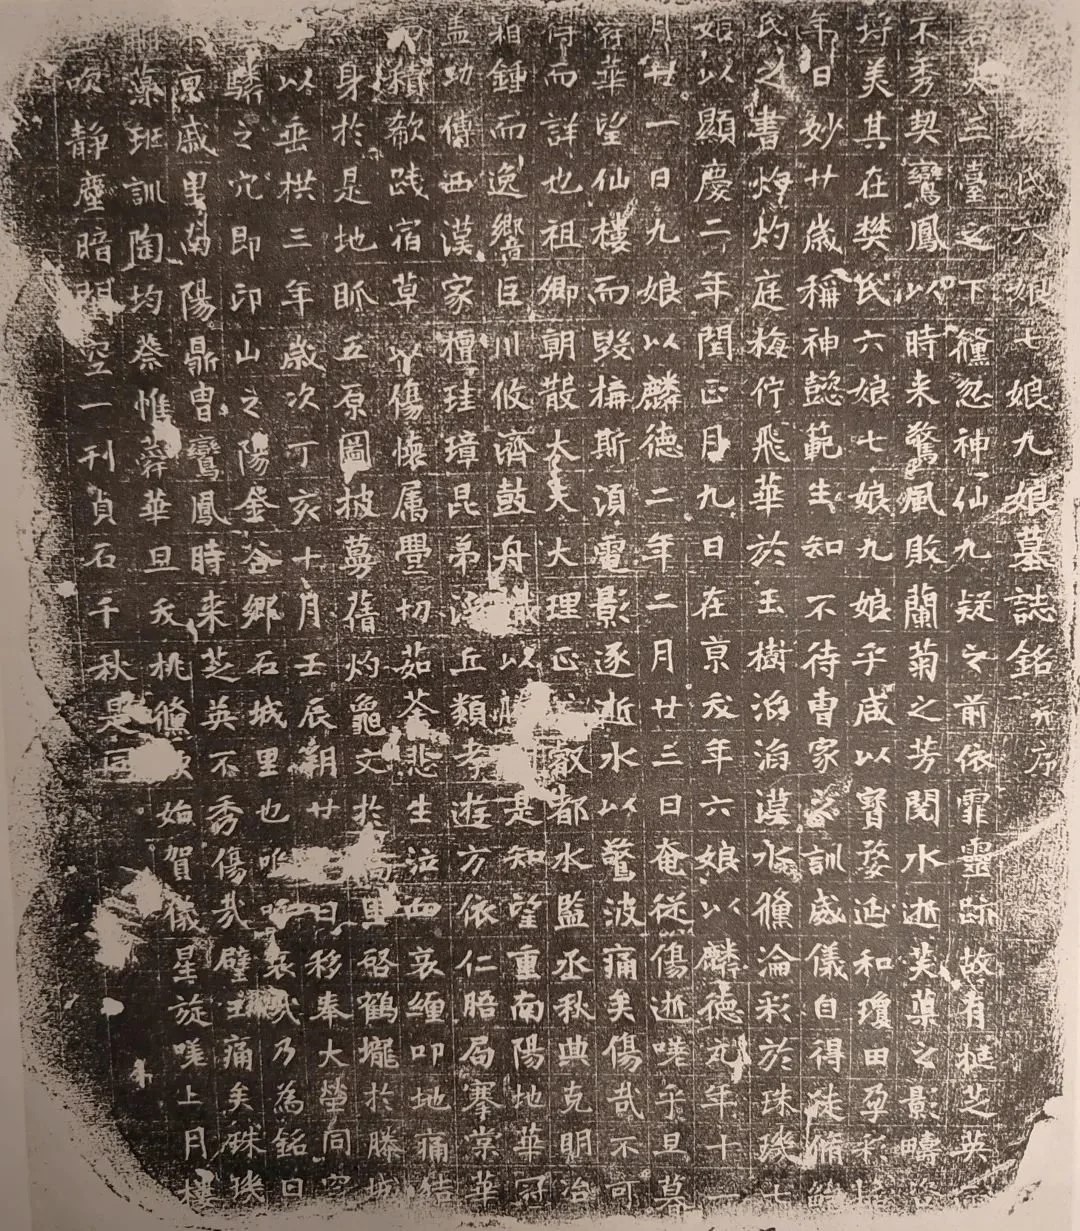 樊氏六娘七娘九娘墓誌銘并序
若夫三臺之下儵忽神仙九疑之前依霏靈跡故有挺芝英
不秀契鸞鳳以時来驚飈敗蘭菊之芳閱水逝芙蕖之影疇
将美其在樊氏六娘七娘九娘乎咸以寳婺延和瓊田孕彩
年日妙廿歲稱神懿範生知不待曹家之訓威儀自得徒脩
氏之書灼灼庭梅佇飛華於玉樹滔滔漢水儵淪彩於珠璣
娘以顯慶二年閏正月九日在京夭年六娘以麟德元年十一
月廿一日九娘以麟德二年二月廿三日奄從傷逝嗟乎旦暮
舜華望仙樓而毀構斯湏電影逐逝水以驚波痛矣傷哉不可
得而詳也祖卿朝散太夫大理正敭都水監丞秋典克明冶
相鍾而逸響臣川攸濟鼓舟以是知望重南陽地華冠
盖功傳西漢家檀珪璋昆弟丘類孝遊方依仁晤局搴棠華
積欷践宿草以傷懷属疊切茹荼悲生泣血哀纏叩地痛結
身於是地眽五原圖披萬舊灼龜文於里啓鶴壠於滕城
以垂栱三年歲次丁亥十月壬辰朔廿日移奉大塋同空
驎之穴即邙山之陽金谷鄉石城里也嗚呼哀哉乃為銘曰
凉戚里南陽鼎胄鸞鳳時来芝英不秀傷哉壁玉痛矣珠璣
藻班訓陶均蔡惟舜華旦夭桃儵始賀儀星旋嗟上月樓
吹静塵暗閒空一刊貞石千秋是同